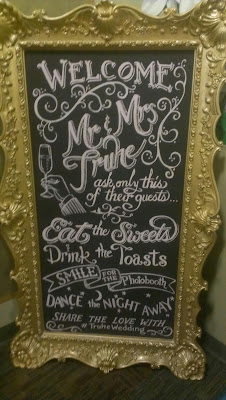 WELCOME
Mr & Mrs
Truhe
ask only this
of their guests...
Eat the Sweets
Drink the Toasts
SMILE FOR THE Photobooth
DANCE the NIGHT AWAY
SHARE THE LOVE WITH
#TruheWedding